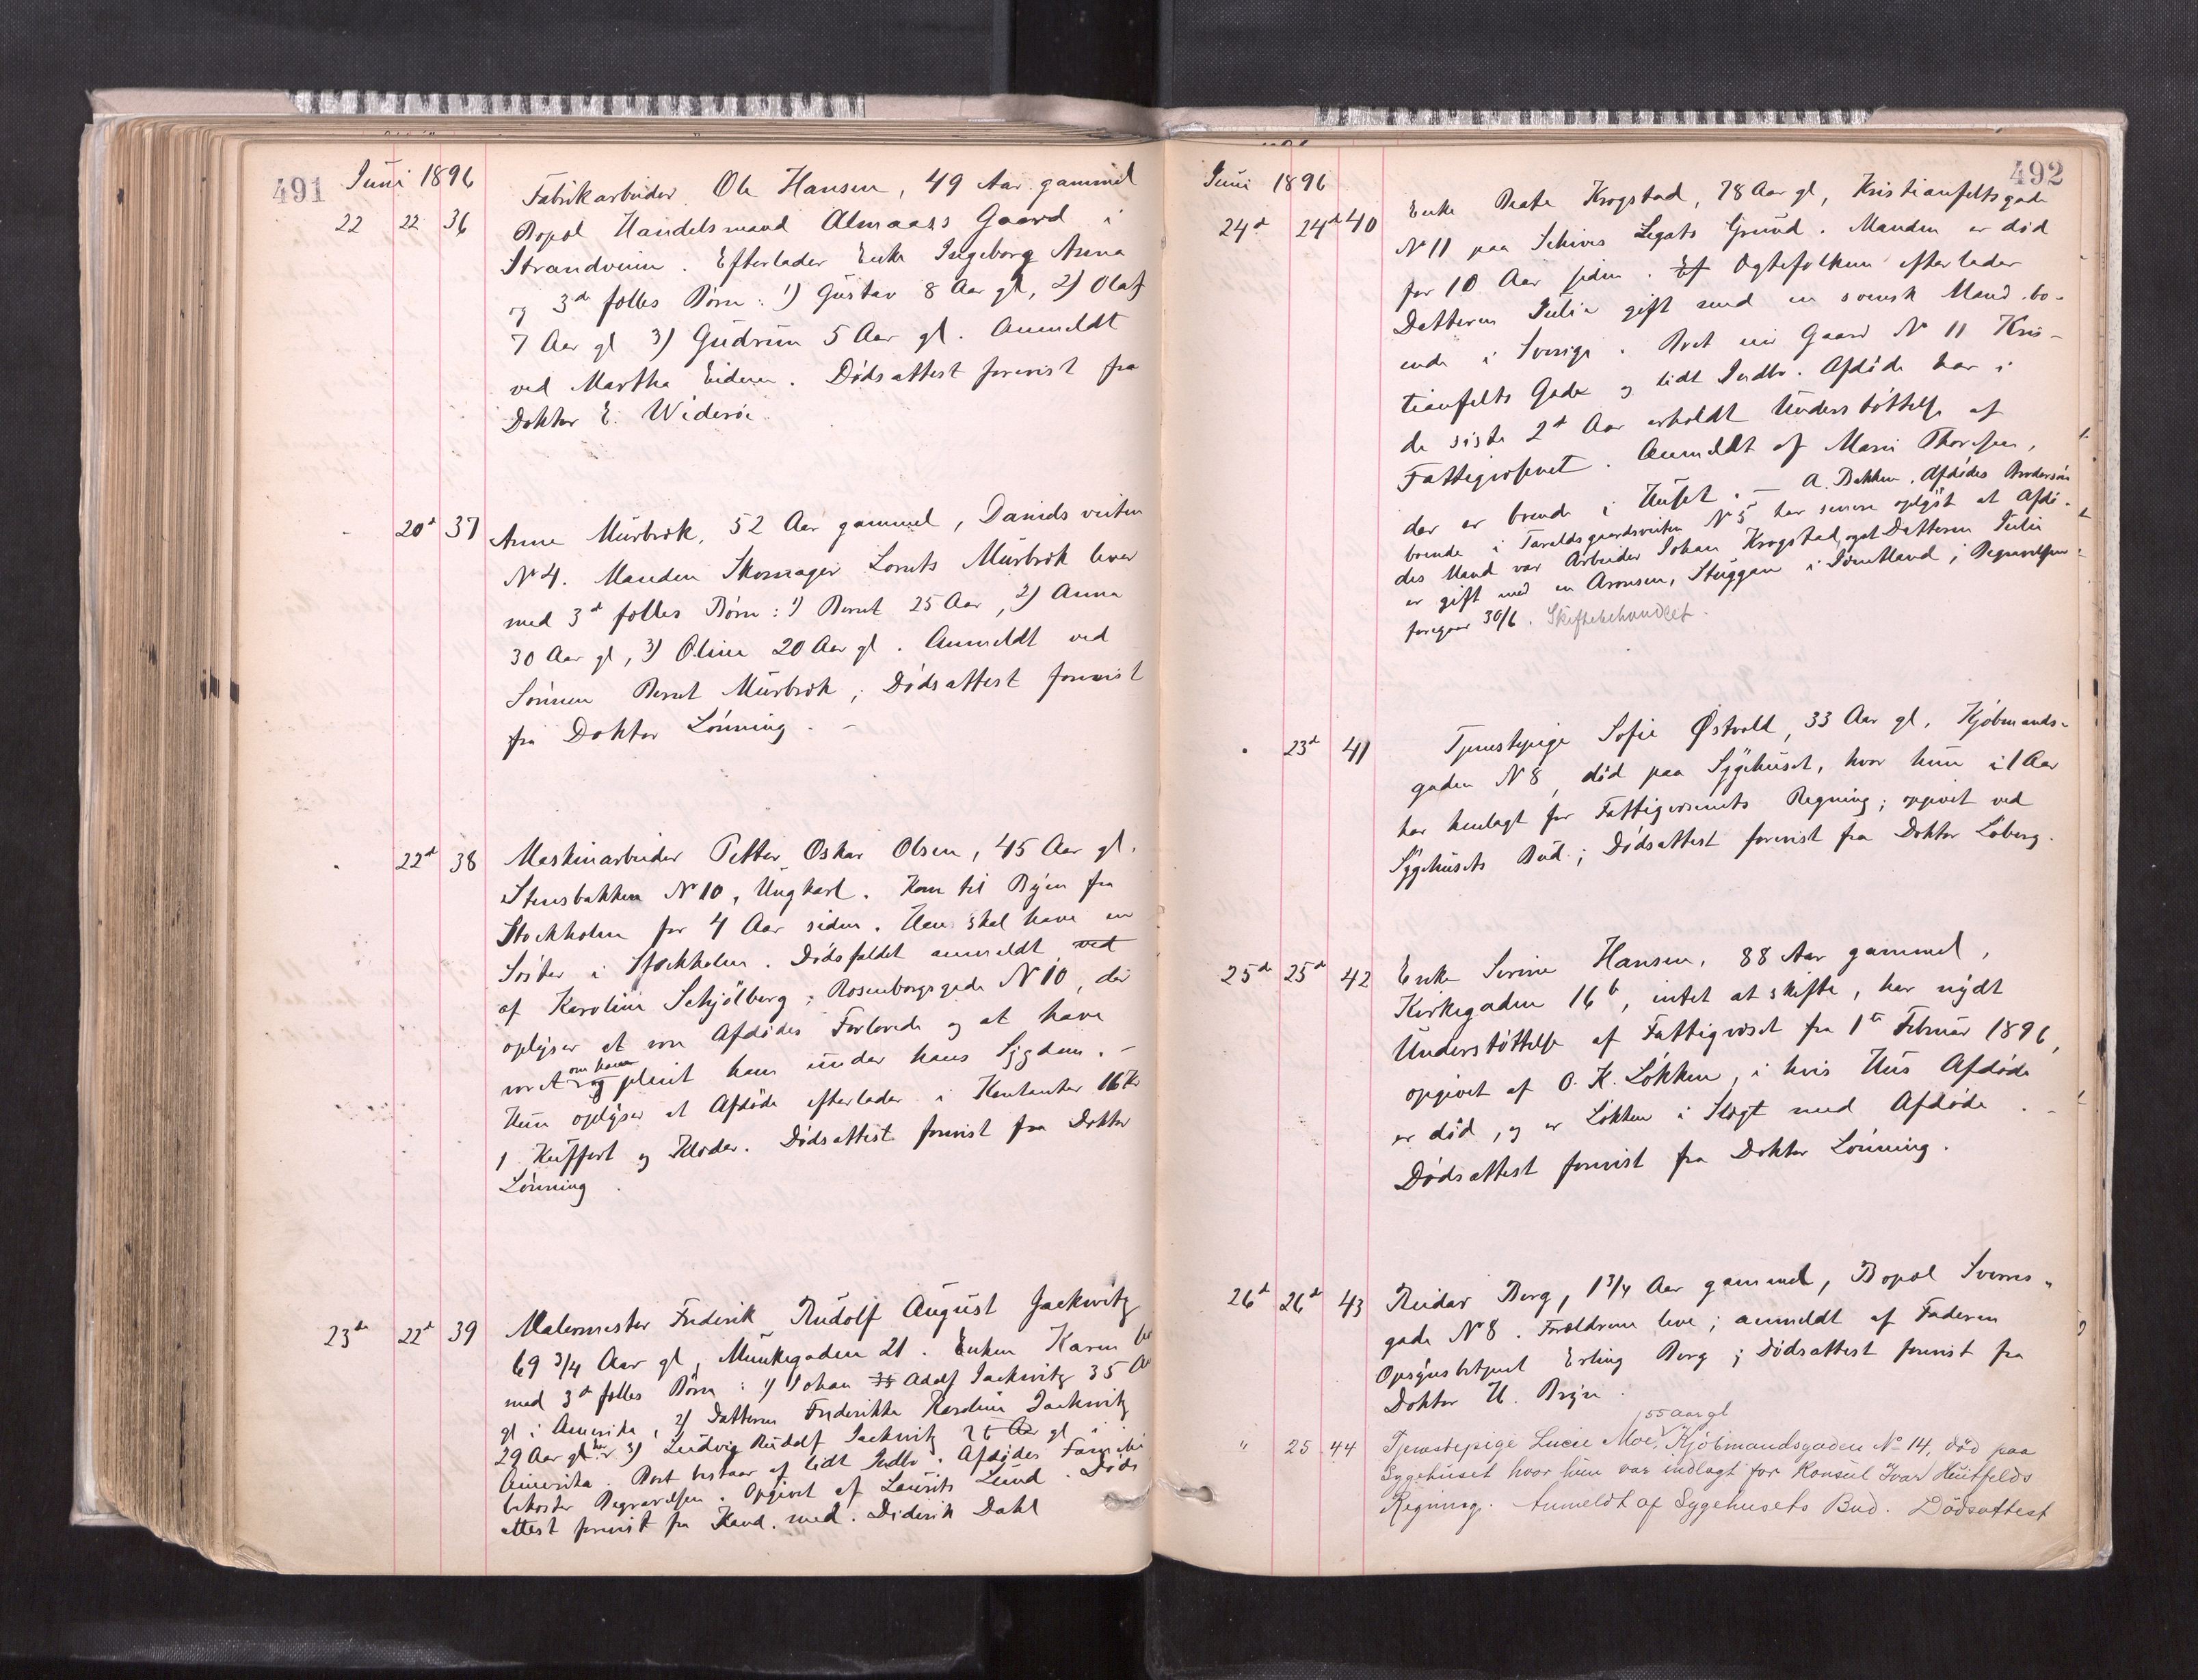 491
Juni 1896
22 22 36 Fabrikarbeider Ole Hansen, 49 Aar gammel
Bopæl Handelsmand Almaass Gaard i
Strandveien. Efterlader Enke Ingeborg Anna
og 3de fælles Børn: 1) Gustav 8 Aar gl, 2) Olaf
7 Aar gl 3) Gudrun 5 Aar gl. Anmeldt
ved Martha Eidem. Dødsattest forevist fra
Doktor E. Widerøe.
20de 37 Anne Murbræk, 52 Aar gammel, Danielsveiten
No 4. Manden Skomager Lornts Murbræk lever
med 3de fælles Børn: 1) Bernt 25 Aar, 2) Anna
30 Aar gl, 3) Oline 20 Aar gl. Anmeldt ved
Sønnen Bernt Murbræk; Dødsattest forevist
fra Doktor Lønning. –
22de 38 Maskinarbeider Petter Oskar Olsen, 45 Aar gl.
Stensbakken No 10, Ungkarl. Kom til Byen fra
Stockholm for 4 Aar siden. Han skal have en
Søster i Stockholm. Dødsfaldet anmeldt ved
af Karoline Schjølberg, Rosenborgsgade No 10, der
oplyser at være Afdødes Forlovede og at have
været om ham og pleiet ham under hans Sygdom. –
Hun oplyser at Afdøde efterlader i Kontanter 16 Kr
1 Kuffert og Klæder. Dødsattest forevist fra Doktor
Lønning.
23de 22de 39 Malermester Frederik Rudolf August Jackwitz
69 3/4 Aar gl, Munkegaden 21. Enken Karen lever
med 3de fælles Børn: 1) Johan 35 Adolf Jackwitz 35 Aar
gl i Amerika, 2) Datteren Frederikke Karoline Jackwitz
29 Aar gl her 3) Ludvig Rudolf Jackwitz 26 Aar gl i
Amerika. Boet bestaar af lidt Indbo. Afdødes Familie
bekoster Begravelsen. Opgivet af Laurits Lund. Døds
attest forevist fra Kand. med. Diderik Dahl
492
Juni 1896
24de 24de 40 Enke Beate Krogstad, 78 Aar gl, Kristianfeltsgade
No 11 paa Schives Legats Grund. Manden er død
for 10 Aar siden. Ef Ægtefolkene efterlader
Datteren Julie gift med en svensk Mand bo-
ende i Sverige. Boet eier Gaard No 11 Kris-
tianfelts Gade og lidt Indbo. Afdøde har i
de siste 2de Aar erholdt Understøttelse af
Fattigvæsenet. Anmeldt af Marie Thoresen,
der er boende i Huset. – A. Bakken, Afdødes Brodersøn
boende i Taraldsgaardsveiten No 5 har senere oplyst at Afdø-
des Mand var Arbeider Johan Krogstad, og at Datteren Julie
er gift med en Aronsen, Stuggan i Jemtland; Begravelsen
foregaar 30/6. Skiftebehandlet.
23de 41 Tjenestepige Sofie Østvold, 33 Aar gl, Kjøbmands-
gaden No 8, død paa Sygehuset, hvor hun i 1 Aar
har henlagt for Fattigvæsenets Regning; opgivet ved
Sygehusets Bud; Dødsattest forevist fra Doktor Løberg.
25de 25de 42 Enke Serine Hansen, 88 Aar gammel,
Kirkegaden 16b, intet at skifte, har nydt
Understøttelse af Fattigvæset fra 1ste Februar 1896,
opgivet af O. K. Løkken, i hvis Hus Afdøde
er død, og er Løkken i Slægt med Afdøde. –
Dødsattest forevist fra Doktor Lønning.
26de 26de 43 Reidar Borg, 1 3/4 Aar gammel, Bopæl Sverres-
gade No 8. Forældrene leve; anmeldt af Faderen
Opsynsbetjent Erling Borg; Dødsattest forevist fra
Doktor H. Bryn.
" 25 44 Tjenestepige Lucie Moe, 55 aar gl Kjøbmandsgaden No 14, død paa
Sygehuset hvor hun var indlagt for Konsul Ivar Huitfelds
Regning. Anmeldt af Sygehusets Bud. Dödsattest